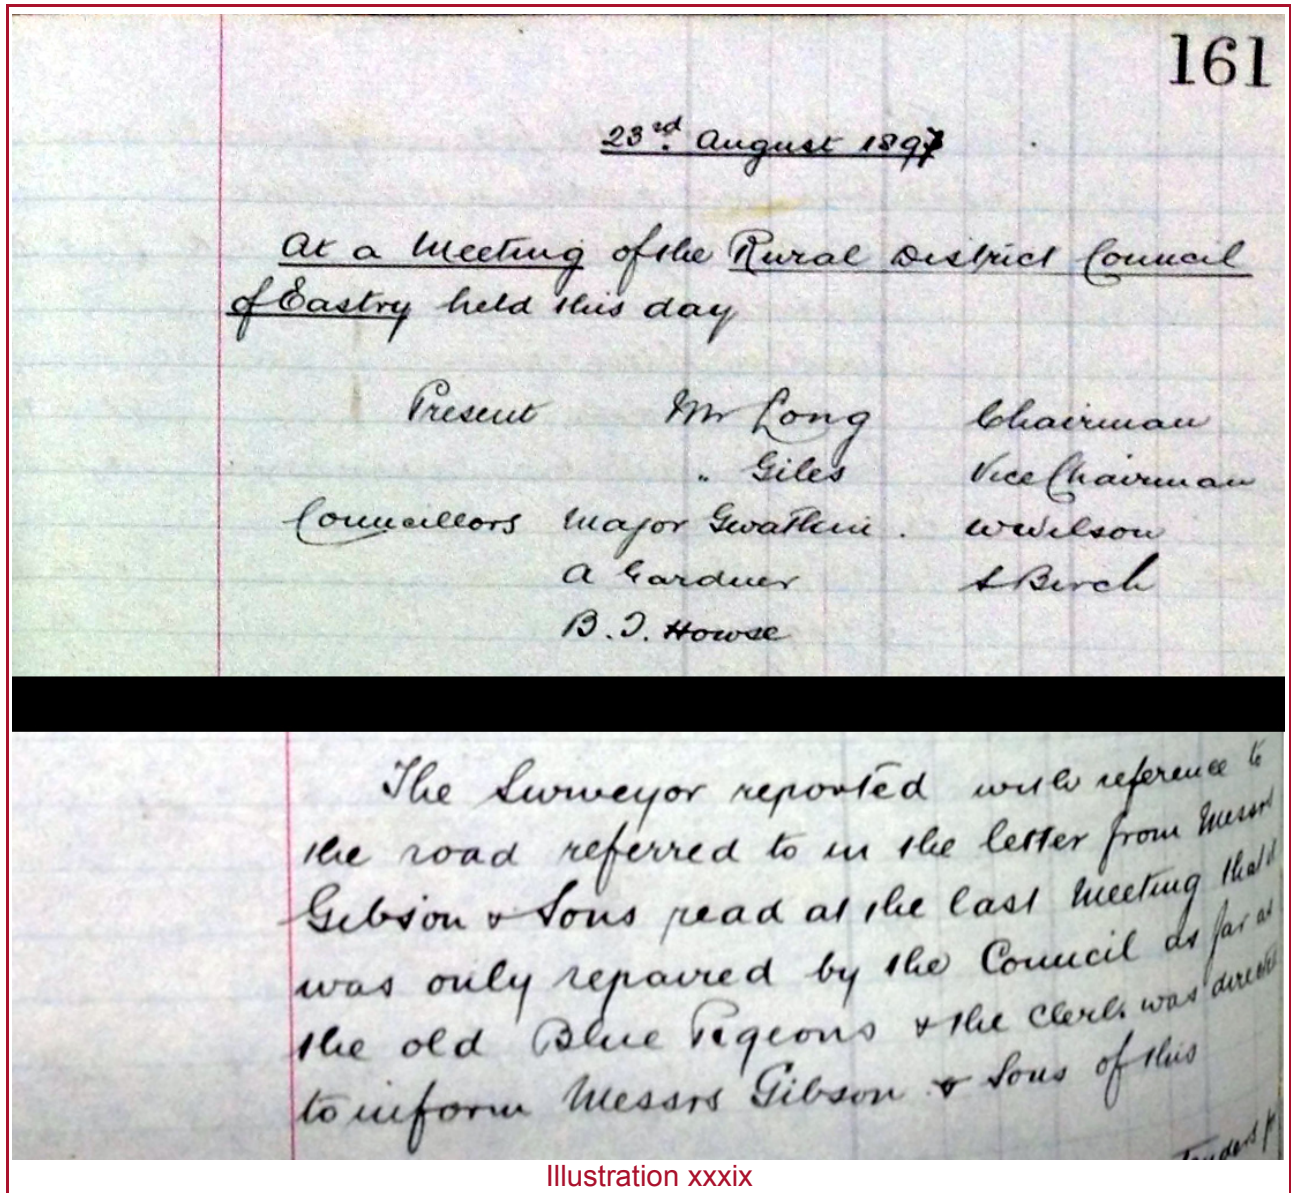 161
23rd. August 1897
At a Meeting of the Rural District Council
of Eastry held this day
Present Mr Long Chairman
" Giles Vice Chairman
Councillors Major Gwatkin . W Wilson
A Gardner S Birch
B. T. Howse
The Surveyor reported with reference to
the road referred to in the letter from Messrs
Gibson & Sons read at the last Meeting that it
was only repaired by the Council as far as
the old Blue Pigeons & the Clerk was directed
to inform Messrs Gibson & Sons of this
Tenders for
Illustration xxxix